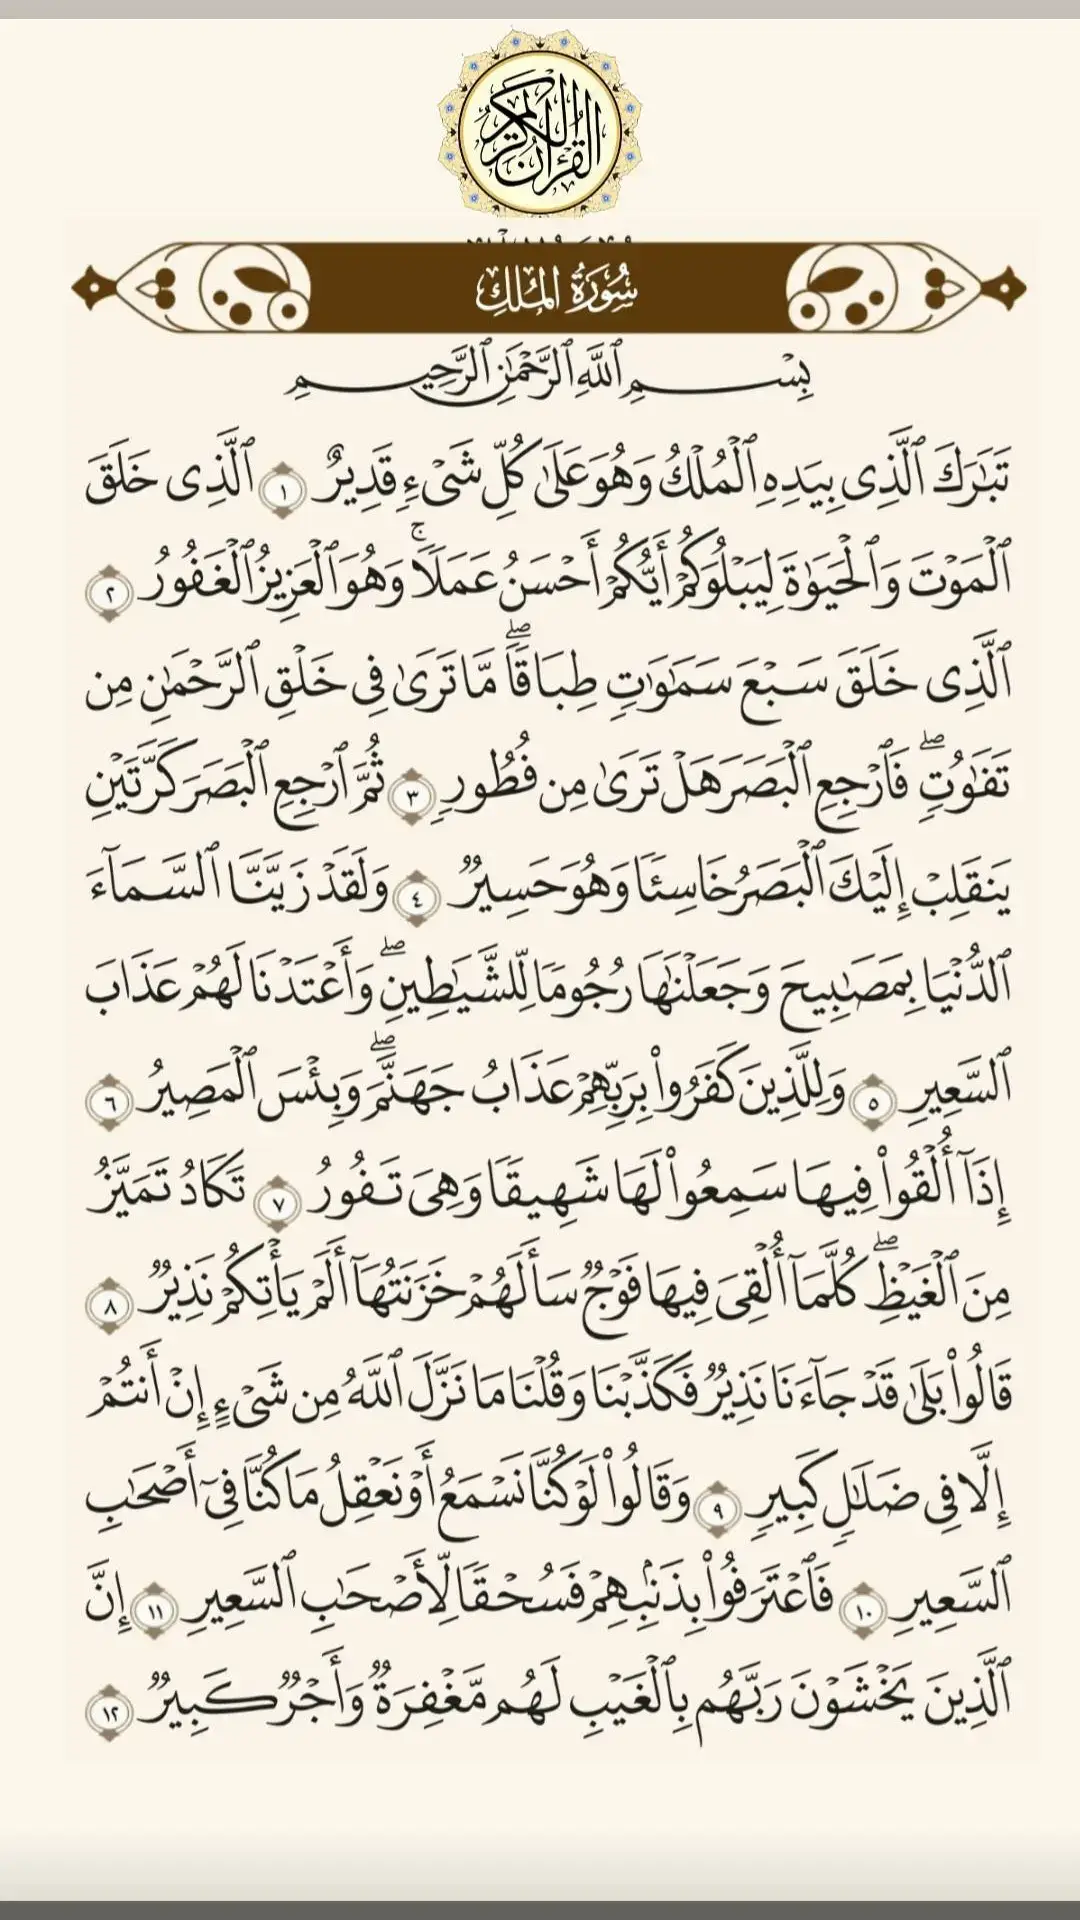 القرآن الكريم
سُورَةُ المُلْكِ
بِسْمِ ٱللَّهِ ٱلرَّحْمَٰنِ ٱلرَّحِيمِ
تَبَٰرَكَ ٱلَّذِى بِيَدِهِ ٱلْمُلْكُ وَهُوَ عَلَىٰ كُلِّ شَىْءٍ قَدِيرٌ ١ ٱلَّذِى خَلَقَ
ٱلْمَوْتَ وَٱلْحَيَوٰةَ لِيَبْلُوَكُمْ أَيُّكُمْ أَحْسَنُ عَمَلًا ۚ وَهُوَ ٱلْعَزِيزُ ٱلْغَفُورُ ٢
ٱلَّذِى خَلَقَ سَبْعَ سَمَٰوَٰتٍ طِبَاقًا ۖ مَّا تَرَىٰ فِى خَلْقِ ٱلرَّحْمَٰنِ مِن
تَفَٰوُتٍ ۖ فَٱرْجِعِ ٱلْبَصَرَ هَلْ تَرَىٰ مِن فُطُورٍ ٣ ثُمَّ ٱرْجِعِ ٱلْبَصَرَ كَرَّتَيْنِ
يَنقَلِبْ إِلَيْكَ ٱلْبَصَرُ خَاسِئًا وَهُوَ حَسِيرٌ ٤ وَلَقَدْ زَيَّنَّا ٱلسَّمَآءَ
ٱلدُّنْيَا بِمَصَٰبِيحَ وَجَعَلْنَٰهَا رُجُومًا لِّلشَّيَٰطِينِ ۖ وَأَعْتَدْنَا لَهُمْ عَذَابَ
ٱلسَّعِيرِ ٥ وَلِلَّذِينَ كَفَرُوا۟ بِرَبِّهِمْ عَذَابُ جَهَنَّمَ ۖ وَبِئْسَ ٱلْمَصِيرُ ٦
إِذَآ أُلْقُوا۟ فِيهَا سَمِعُوا۟ لَهَا شَهِيقًا وَهِىَ تَفُورُ ٧ تَكَادُ تَمَيَّزُ
مِنَ ٱلْغَيْظِ ۖ كُلَّمَآ أُلْقِىَ فِيهَا فَوْجٌ سَأَلَهُمْ خَزَنَتُهَآ أَلَمْ يَأْتِكُمْ نَذِيرٌ ٨
قَالُوا۟ بَلَىٰ قَدْ جَآءَنَا نَذِيرٌ فَكَذَّبْنَا وَقُلْنَا مَا نَزَّلَ ٱللَّهُ مِن شَىْءٍ إِنْ أَنتُمْ
إِلَّا فِى ضَلَٰلٍ كَبِيرٍ ٩ وَقَالُوا۟ لَوْ كُنَّا نَسْمَعُ أَوْ نَعْقِلُ مَا كُنَّا فِىٓ أَصْحَٰبِ
ٱلسَّعِيرِ ١٠ فَٱعْتَرَفُوا۟ بِذَنۢبِهِمْ فَسُحْقًا لِّأَصْحَٰبِ ٱلسَّعِيرِ ١١ إِنَّ
ٱلَّذِينَ يَخْشَوْنَ رَبَّهُم بِٱلْغَيْبِ لَهُم مَّغْفِرَةٌ وَأَجْرٌ كَبِيرٌ ١٢